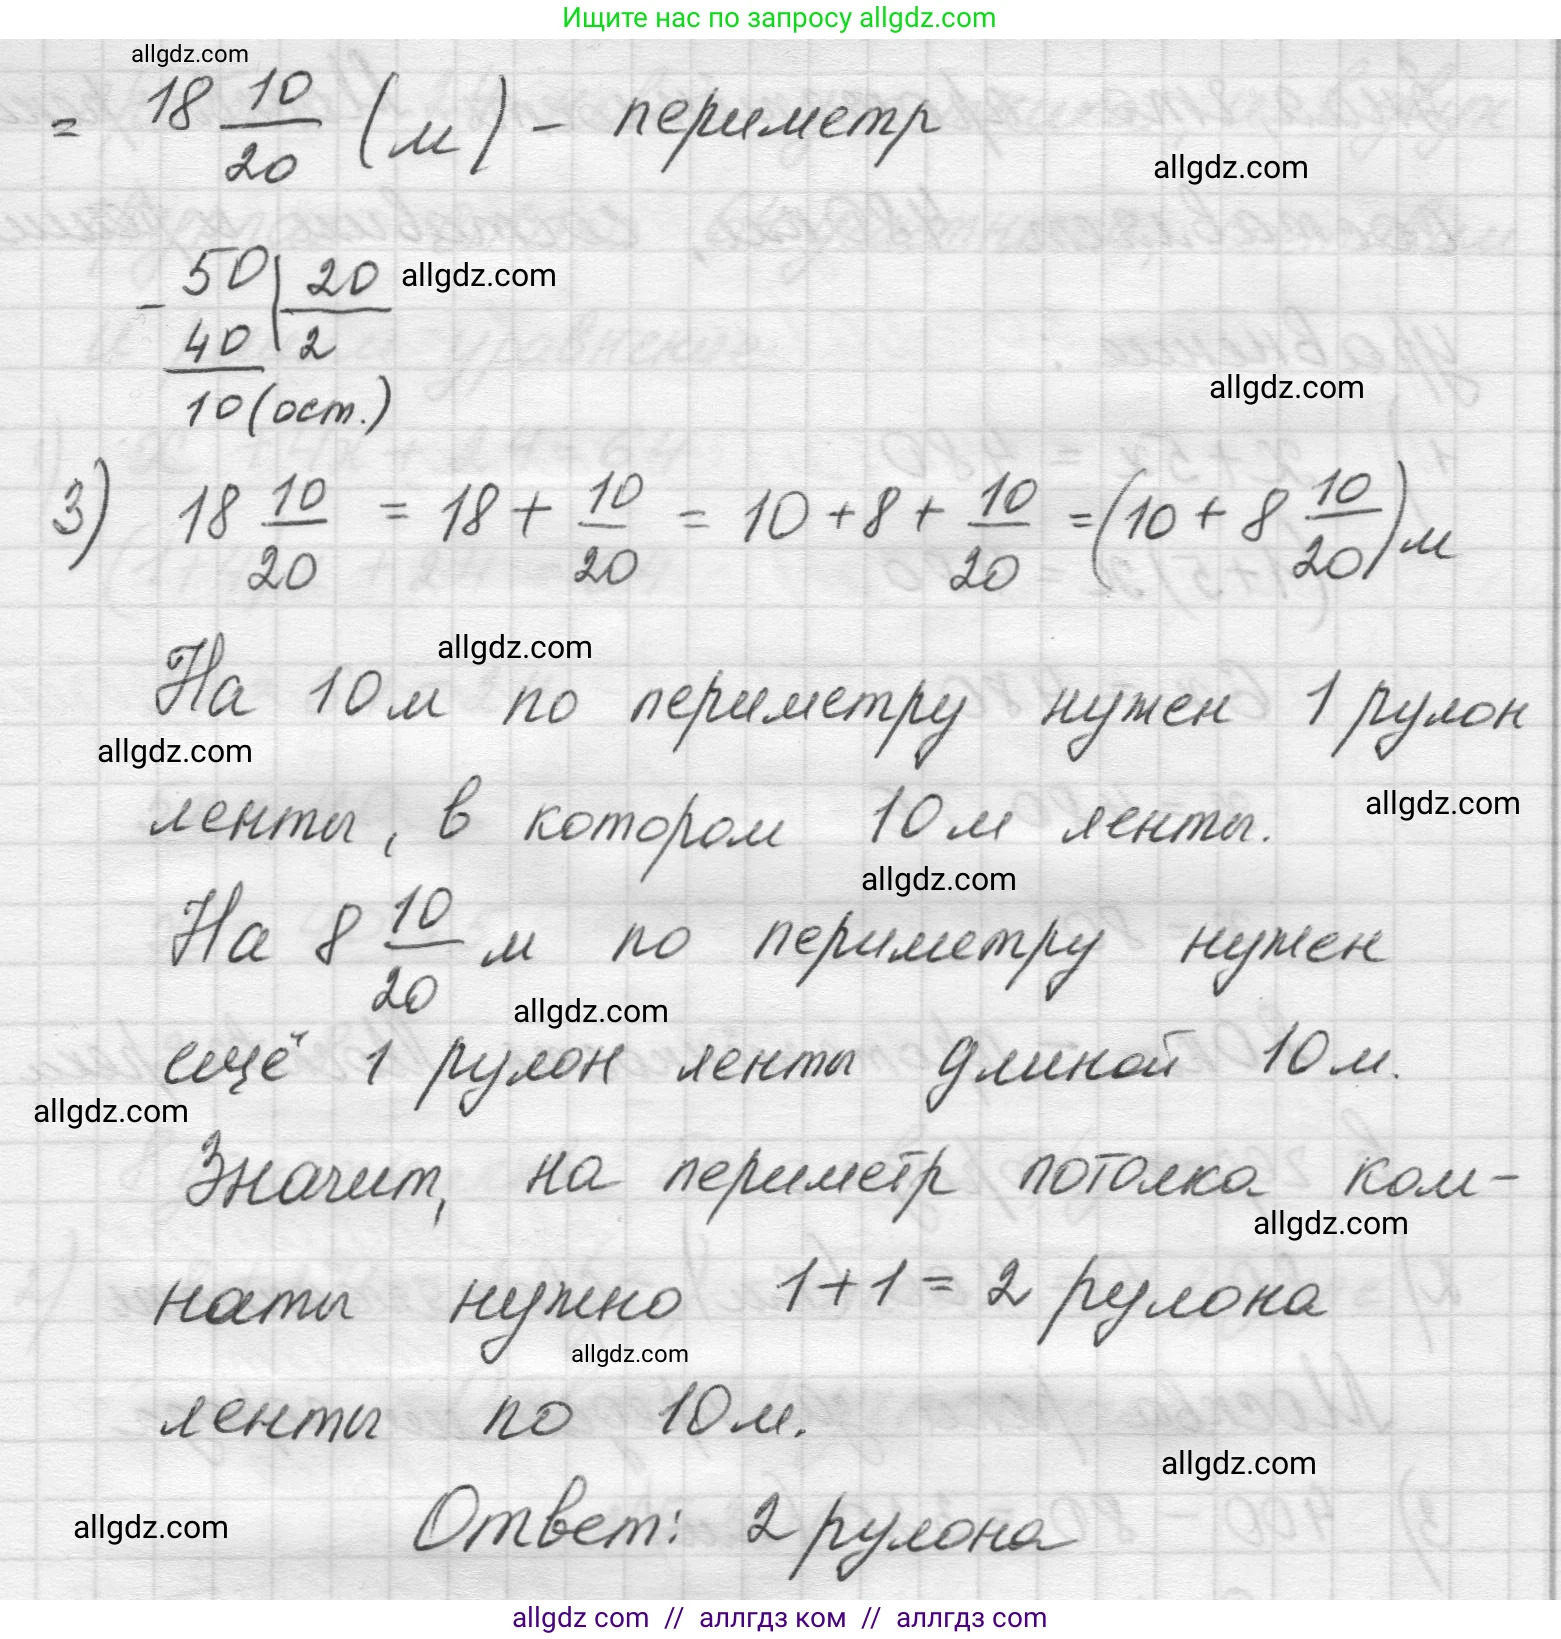 Ищите нас по запросу allgdz.com
allgdz.com
= 18 10/20 (м) - периметр
allgdz.com
- 50 | 20
allgdz.com
40 | 2
10 (ост.)
allgdz.com
3) 18 10/20 = 18 + 10/20 = 10 + 8 + 10/20 = (10 + 8 10/20) м
allgdz.com
На 10 м по периметру нужен 1 рулон
allgdz.com
ленты, в котором 10 м ленты.
allgdz.com
allgdz.com
На 8 10/20 м по периметру нужен
allgdz.com
ещё 1 рулон ленты длиной 10 м.
allgdz.com
Значит, на периметр потолка ком-
allgdz.com
наты нужно 1+1=2 рулона
allgdz.com
ленты по 10 м.
allgdz.com
allgdz.com
Ответ: 2 рулона
allgdz com // аллгдз ком // аллгдз com